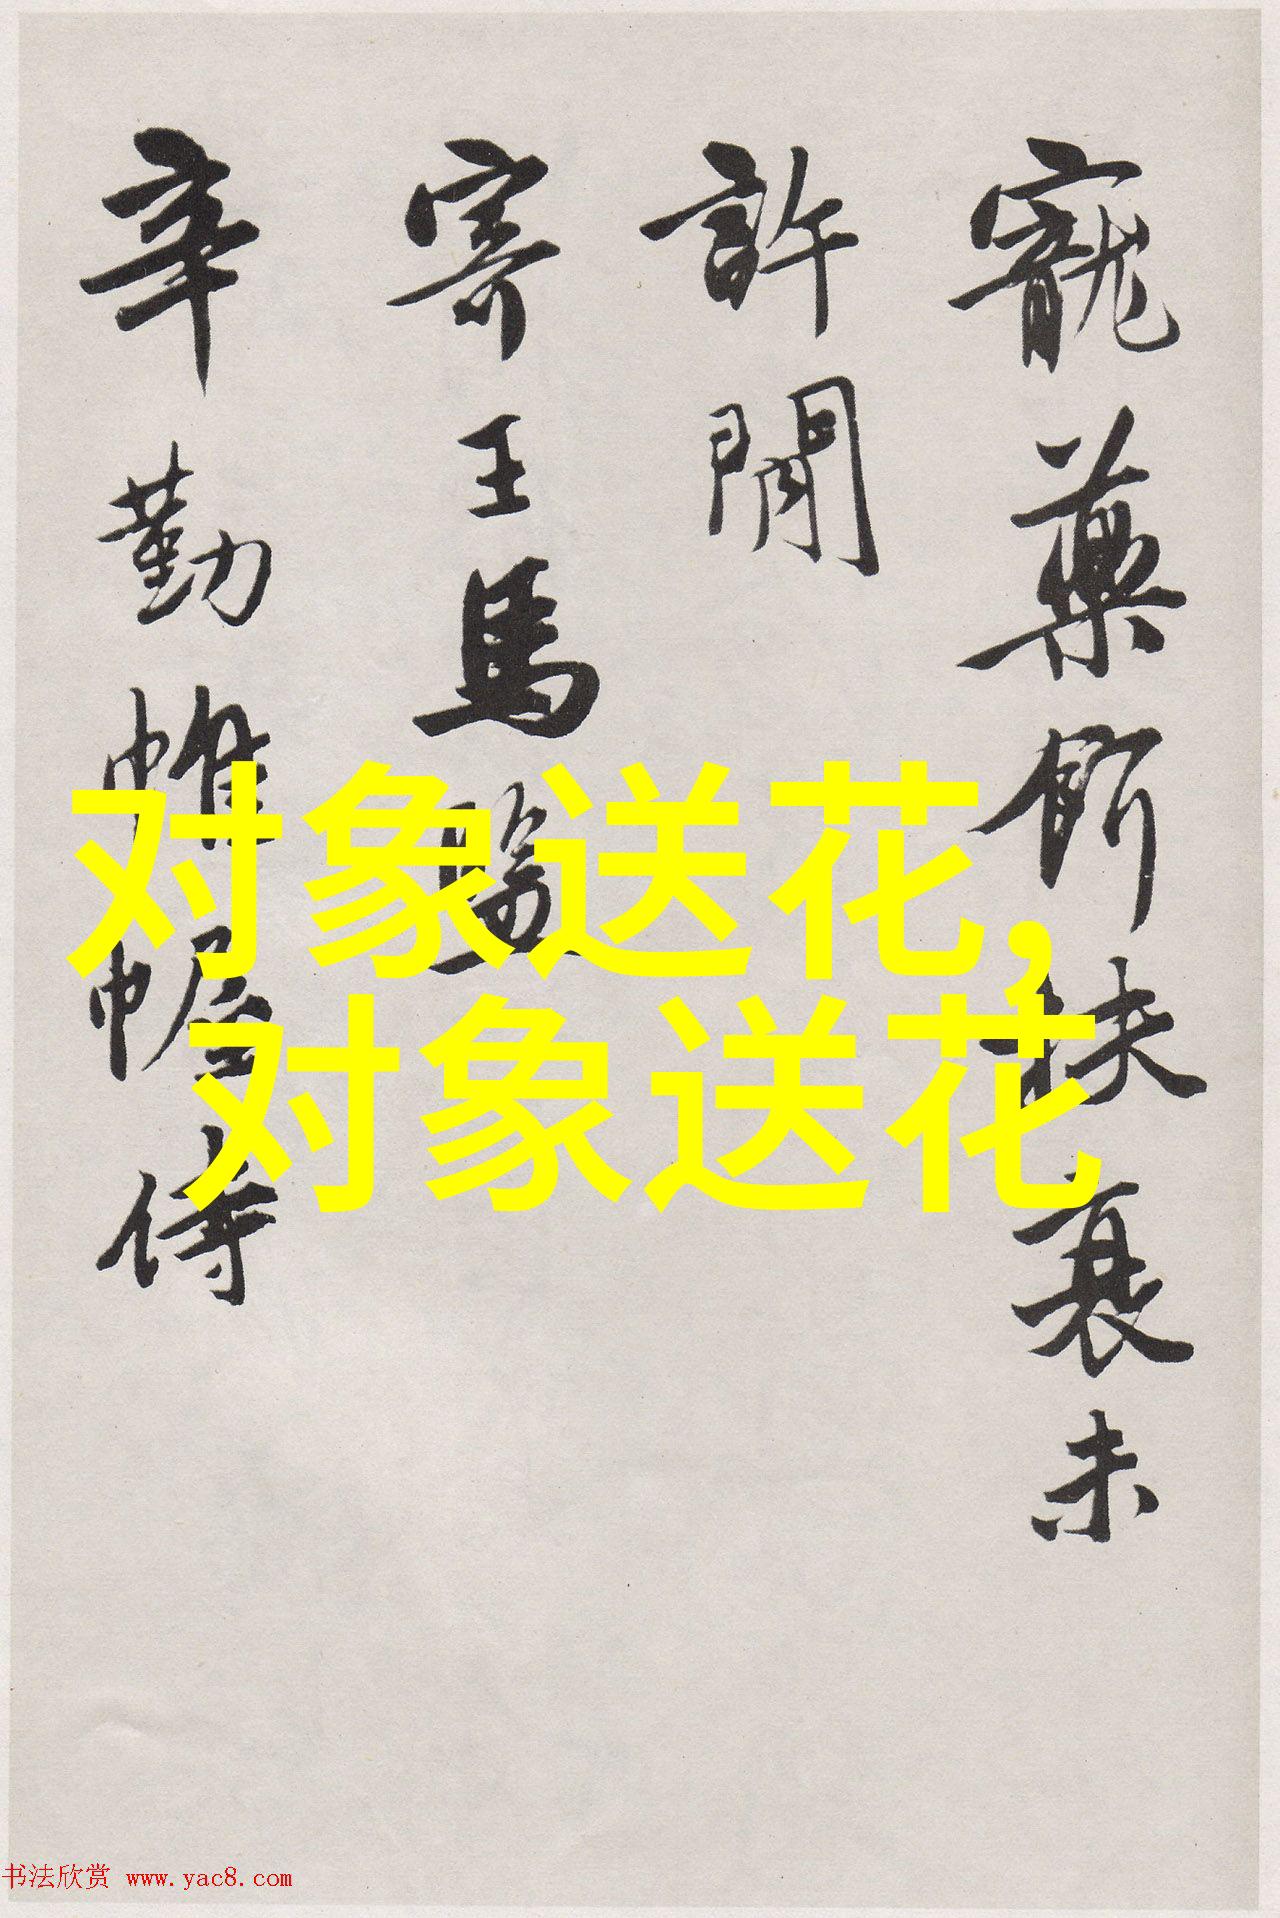 寵藥餌扶衰未
許閒
寄王馬
辛勤帷幄侍
对象送花,
对象送花
书法欣赏 www.yac8.com